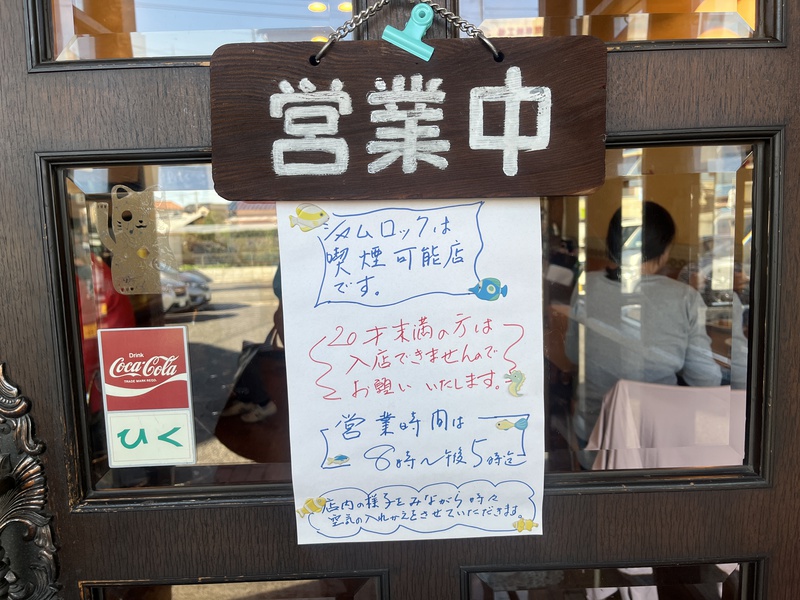 営業中
シャムロックは
喫煙可能店
です。
20才未満の方は
入店できませんので
お願いいたします。
営業時間は
8時〜午後5時迄
店内の様子をみながら時々
空気の入れかえをさせていただきます。
Drink
Coca-Cola
TRADE MARK REGD.
ひく